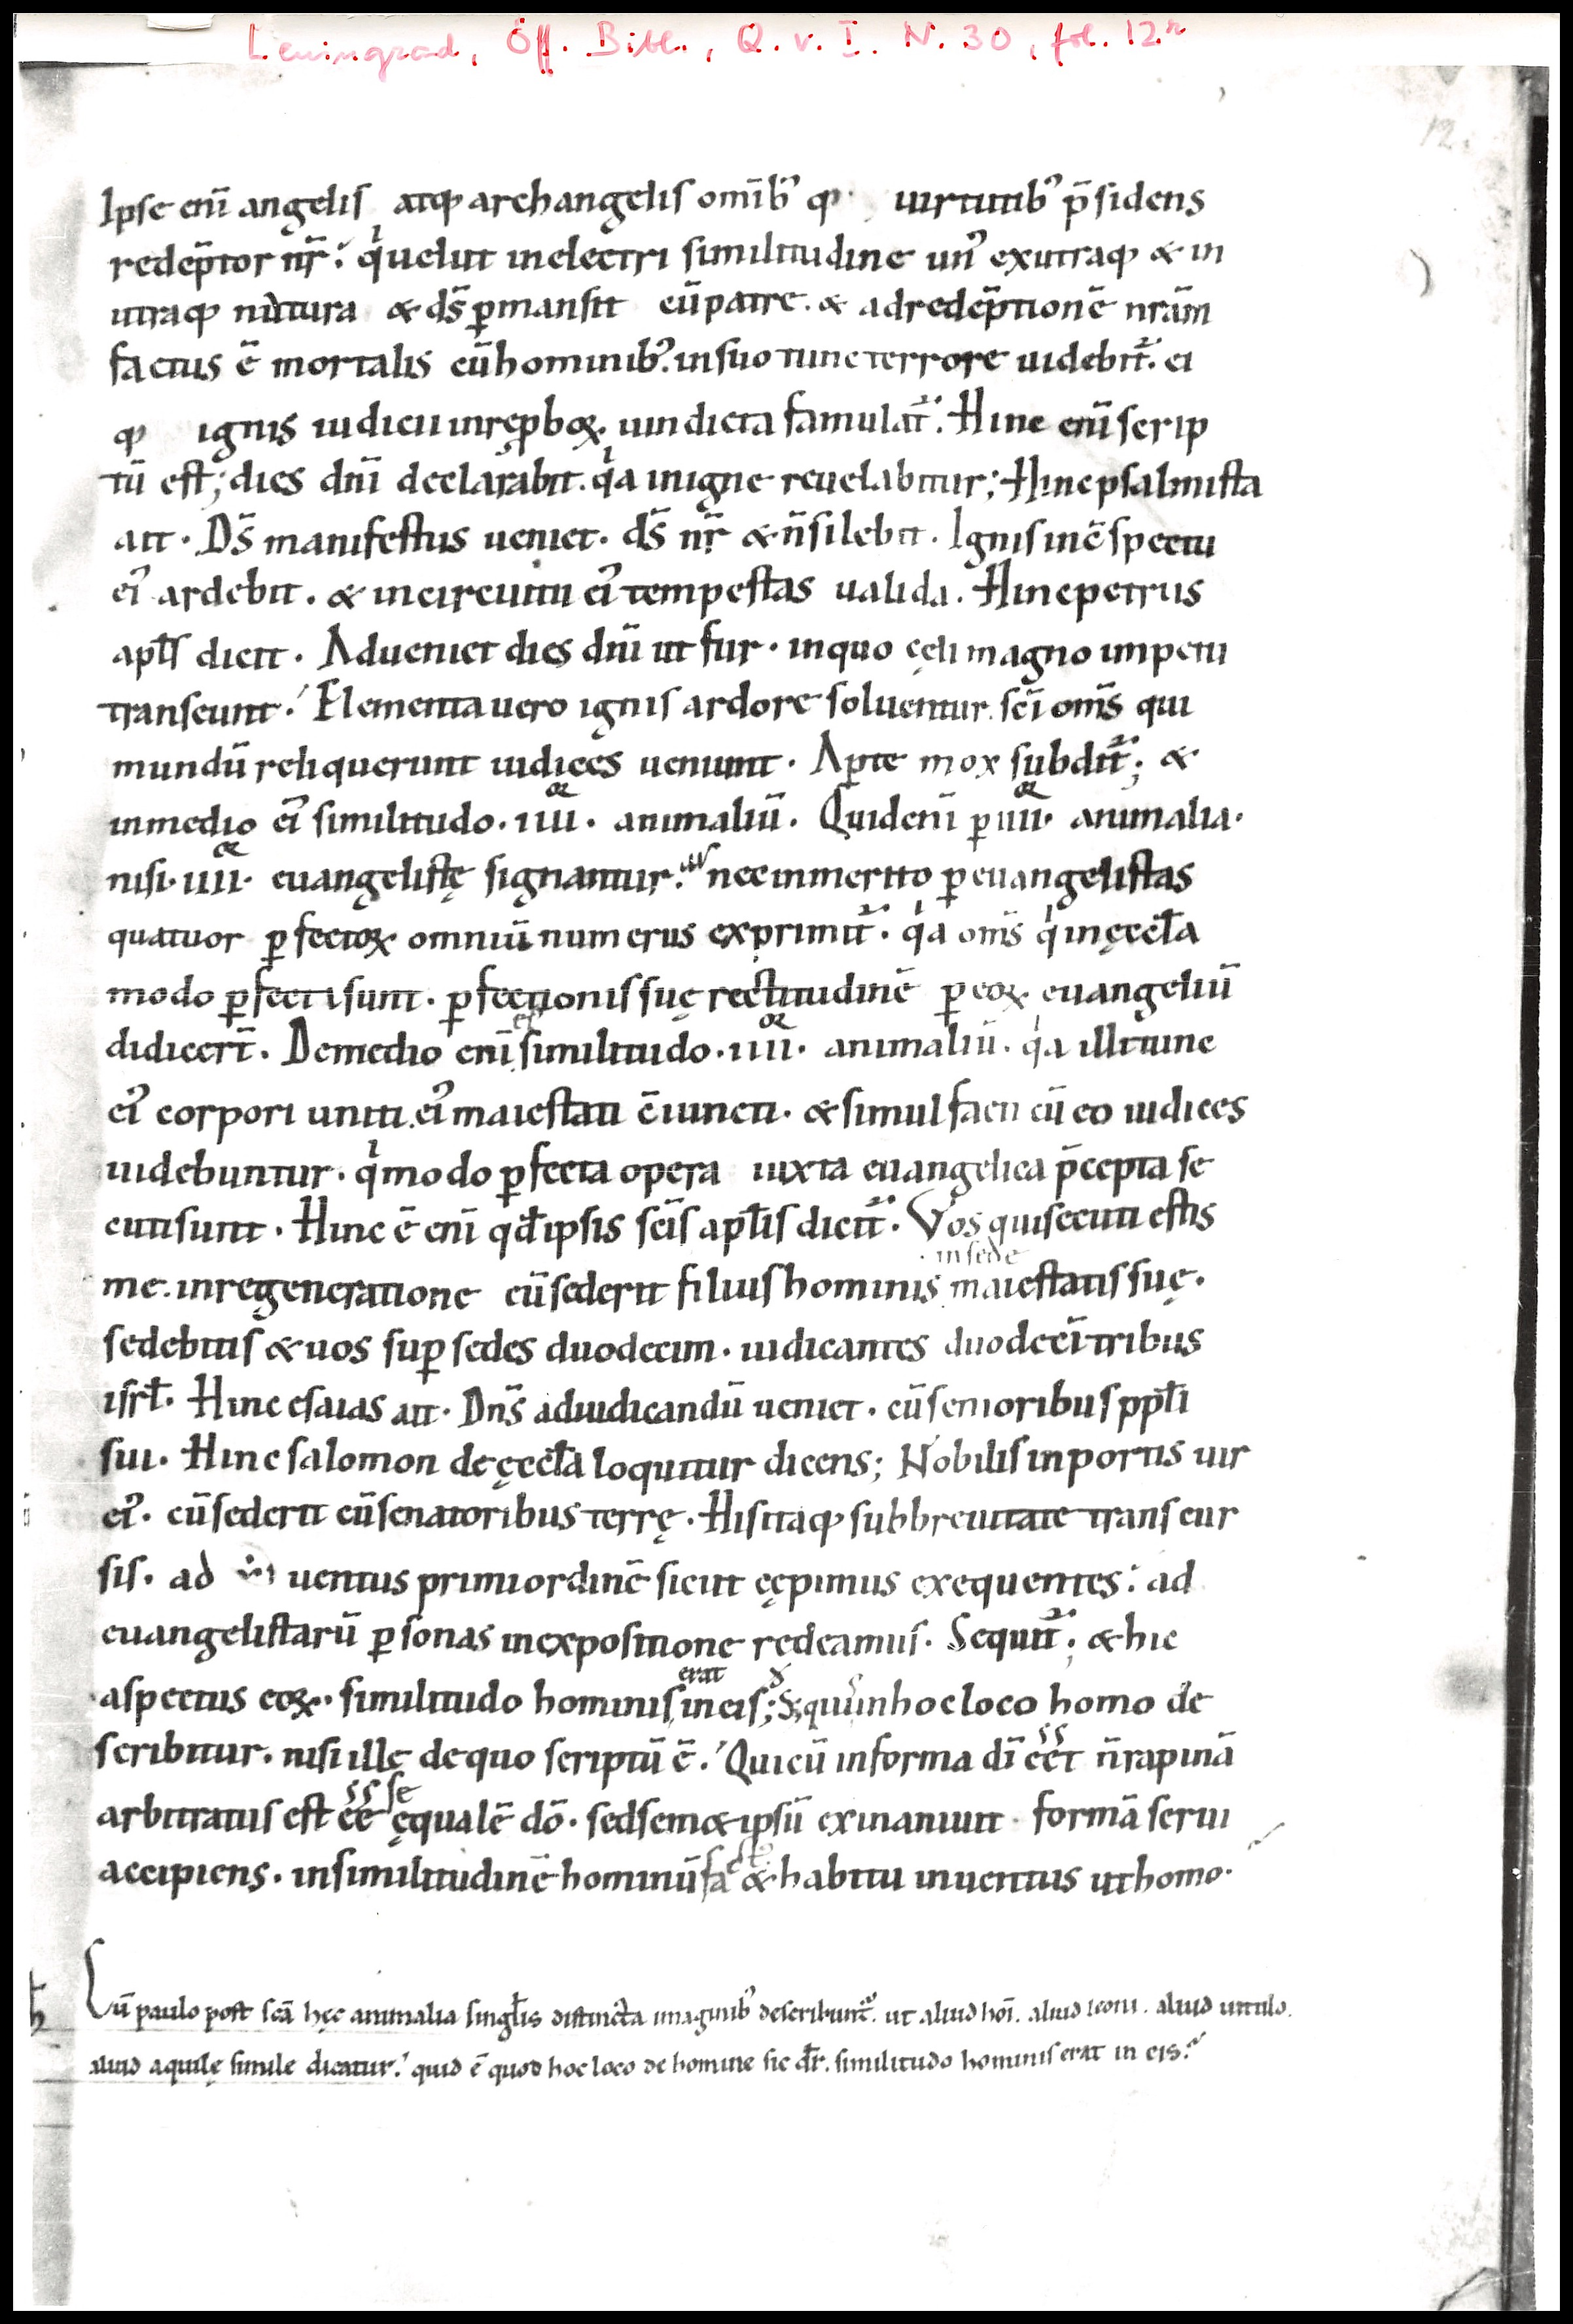 Leningrad, Öff. Bibl., Q. v. I. N. 30, fol. 12r
12.
Ipse enī angelis atqꝫ archangelis omīb; qꝫ uirtutib; p̄sidens
redēptor nr̄. qͥ uelut inelectri similitudine un; exutraqꝫ & in
utraqꝫ natura & ds̄ ꝑmansit cū patre. & adredēptionē nrām
factus ē mortalis cū hominib;. insuo tunc terrore uidebit᷑. ei
qꝫ ignis iudicii inreꝓboꝝ. uindicta famulat᷑. Hinc enī scrip
tū est; dies dnī declarabit. qͥa inigne reuelabitur; Hinc psalmista
ait. Ds̄ manifestus ueniet. ds̄ nr̄ & n̄ silebit. Ignis inc̄spectu
ei; ardebit. & incircuitu ei; tempestas ualida. Hinc petrus
apłs dicit. Adueniet dies dnī ut fur. inquo cęli magno impetu
transeunt. Elementa uero ignis ardore soluentur. scī oms̄ qui
mundū reliquerunt iudices ueniunt. Aꝑte mox subdit᷑; &
inmedio ei; similitudo. iiiioꝝ. animaliū. Quid enī ꝑ iiiioꝝ. animalia.
nisi. iiiioꝝ. euangelistę signantur. nec inmerito ꝑ euangelistas
quatuor ꝑfectoꝝ omniū numerus exprimit᷑. qͥa oms̄ qͥ inęccła
modo ꝑfecti sunt. ꝑfectionis suę rectitudinē ꝑ eoꝝ euangeliū
didicer̄t. Demedio enī est similitudo. iiiioꝝ. animaliū. qͥa illi tunc
ei; corpori uniti. ei; maiestati c̄iuncti. & simul facti cū eo iudices
uidebuntur. qͥ modo ꝑfecta opera iuxta euangelica p̄cepta se
cuti sunt. Hinc ē enī qđ ipsis scīs apłis dicit᷑. Vos qui secuti estis
me. inregeneratione cū sederit filius hominis in sede maiestatis suę.
sedebitis & uos suꝑ sedes duodecim. iudicantes duodecī tribus
isrł. Hinc esaias ait. Dns̄ adiudicandū ueniet. cū senioribus ppłi
sui. Hinc salomon de ęccła loquitur dicens; Nobilis inportis uir
ei;. cū sederit cū senatoribus terrę. His itaqꝫ subbreuitate transcur
sis. ad uentus primi ordinē sicut cępimus exequentes. ad
euangelistarū ꝑsonas inexpositione redeamus. Sequit᷑; & hic
aspectus eoꝝ. similitudo hominis erat in eis; inhoc loco homo de
scribitur. nisi ille dequo scriptū ē. Qui cū informa dī ēēt n̄ rapinā
arbitratus est ēē se ęqualē dō. sed sem&ipsū exinaniuit formā serui
accipiens. insimilitudinē hominū fact; & habitu inuentus ut homo.
Cū paulo post scā hęc animalia singłis distincta imaginib; describunt᷑. ut aliud hoī. aliud leoni. aliud uitulo.
aliud aquilę simile dicatur. quid ē quod hoc loco de homine sic dr̄. similitudo hominis erat in eis.